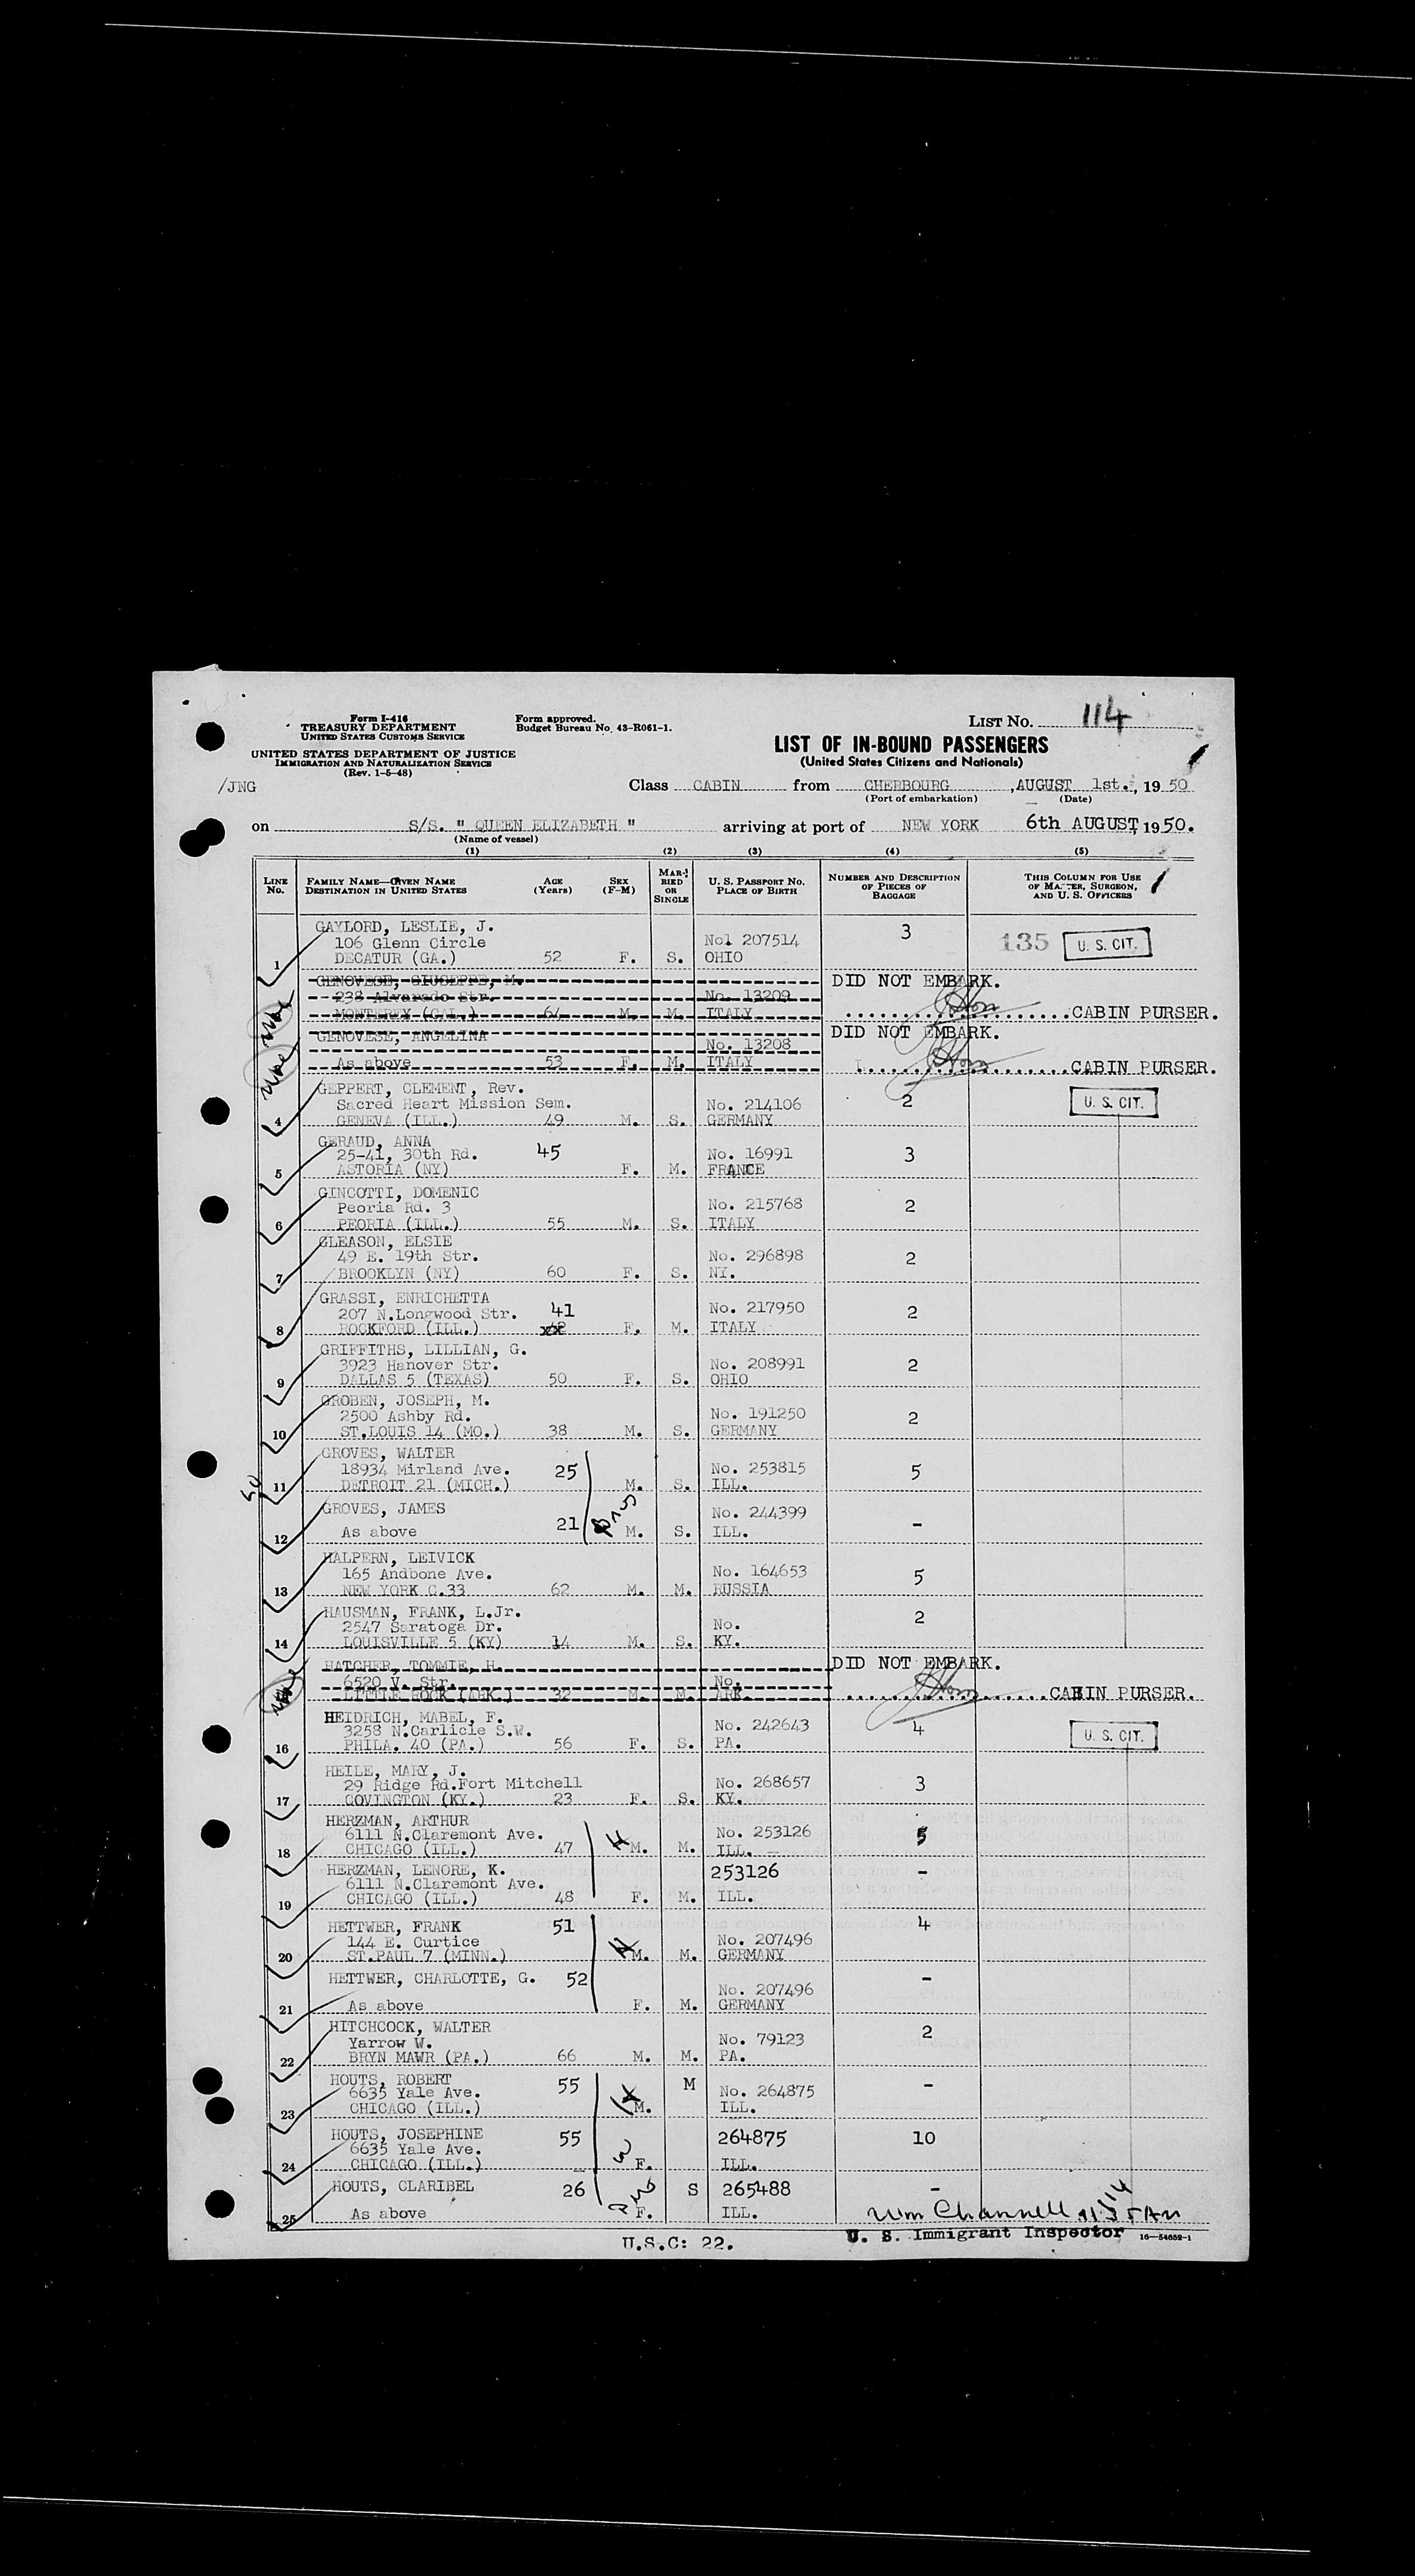 Form I-416
TREASURY DEPARTMENT
UNITED STATES CUSTOMS SERVICE
Form approved.
Budget Bureau No. 43-R061-1.
LIST No. 114
UNITED STATES DEPARTMENT OF JUSTICE
IMMIGRATION AND NATURALIZATION SERVICE
(Rev. 1-5-48)
LIST OF IN-BOUND PASSENGERS
(United States Citizens and Nationals)
/JNG
Class CABIN from CHERBOURG, AUGUST 1st., 1950
(Port of embarkation) (Date)
on S/S. " QUEEN ELIZABETH " arriving at port of NEW YORK 6th AUGUST, 1950.
(Name of vessel)
(1) (2) (3) (4) (5)
LINE No. FAMILY NAME—GIVEN NAME DESTINATION IN UNITED STATES AGE (Years) SEX (F-M) MARRIED OR SINGLE U. S. PASSPORT No. PLACE OF BIRTH NUMBER AND DESCRIPTION OF PIECES OF BAGGAGE THIS COLUMN FOR USE OF MASTER, SURGEON, AND U. S. OFFICERS
GAYLORD, LESLIE, J. 3
106 Glenn Circle No1 207514 135 U. S. CIT.
1 DECATUR (GA.) 52 F. S. OHIO
GENOVESE, GIUSEPPE, M. DID NOT EMBARK.
238 Alvarado Str. No. 13209
MONTEREY (CAL.) 64 M. M. ITALY CABIN PURSER.
GENOVESE, ANGELINA DID NOT EMBARK.
No. 13208
As above 53 F. M. ITALY CABIN PURSER.
GEPPERT, CLEMENT, Rev.
Sacred Heart Mission Sem. No. 214106 2 U. S. CIT.
4 GENEVA (ILL.) 49 M. S. GERMANY
GERAUD, ANNA
25-41, 30th Rd. 45 No. 16991 3
5 ASTORIA (NY) F. M. FRANCE
GINCOTTI, DOMENIC
Peoria Rd. 3 No. 215768 2
6 PEORIA (ILL.) 55 M. S. ITALY
GLEASON, ELSIE
49 E. 19th Str. No. 296898 2
7 BROOKLYN (NY) 60 F. S. NY.
GRASSI, ENRICHETTA
207 N.Longwood Str. 41 No. 217950 2
8 ROCKFORD (ILL.) F. M. ITALY
GRIFFITHS, LILLIAN, G.
3923 Hanover Str. No. 208991 2
9 DALLAS 5 (TEXAS) 50 F. S. OHIO
GROBEN, JOSEPH, M.
2500 Ashby Rd. No. 191250 2
10 ST.LOUIS 14 (MO.) 38 M. S. GERMANY
GROVES, WALTER
18934 Mirland Ave. 25 No. 253815 5
11 DETROIT 21 (MICH.) M. S. ILL.
GROVES, JAMES No. 244399
12 As above 21 M. S. ILL. -
HALPERN, LEIVICK
165 Andbone Ave. No. 164653 5
13 NEW YORK C.33 62 M. M. RUSSIA
HAUSMAN, FRANK, L.Jr. 2
2547 Saratoga Dr. No.
14 LOUISVILLE 5 (KY) 14 M. S. KY.
HATCHER, TOMMIE, H. DID NOT EMBARK.
6520 V. Str. No.
LITTLE ROCK (ARK.) 32 M. M. ARK. CABIN PURSER.
HEIDRICH, MABEL, F.
3258 N.Carlicle S.W. No. 242643 4 U. S. CIT.
16 PHILA. 40 (PA.) 56 F. S. PA.
HEILE, MARY, J.
29 Ridge Rd.Fort Mitchell No. 268657 3
17 COVINGTON (KY.) 23 F. S. KY.
HERZMAN, ARTHUR
6111 N.Claremont Ave. No. 253126 5
18 CHICAGO (ILL.) 47 M. M. ILL.
HERZMAN, LENORE, K. 253126 -
6111 N.Claremont Ave.
19 CHICAGO (ILL.) 48 F. M. ILL.
HETTWER, FRANK 51 4
144 E. Curtice No. 207496
20 ST.PAUL 7 (MINN.) M. M. GERMANY
HETTWER, CHARLOTTE, G. 52 -
No. 207496
21 As above F. M. GERMANY
HITCHCOCK, WALTER 2
Yarrow W. No. 79123
22 BRYN MAWR (PA.) 66 M. M. PA.
HOUTS, ROBERT 55 M -
6635 Yale Ave. No. 264875
23 CHICAGO (ILL.) M. ILL.
HOUTS, JOSEPHINE 55 264875 10
6635 Yale Ave.
24 CHICAGO (ILL.) F. ILL.
HOUTS, CLARIBEL 26 S 265488 -
25 As above F. ILL. Wm Channell
U. S. Immigrant Inspector 16—54652-1
U.S.C: 22.